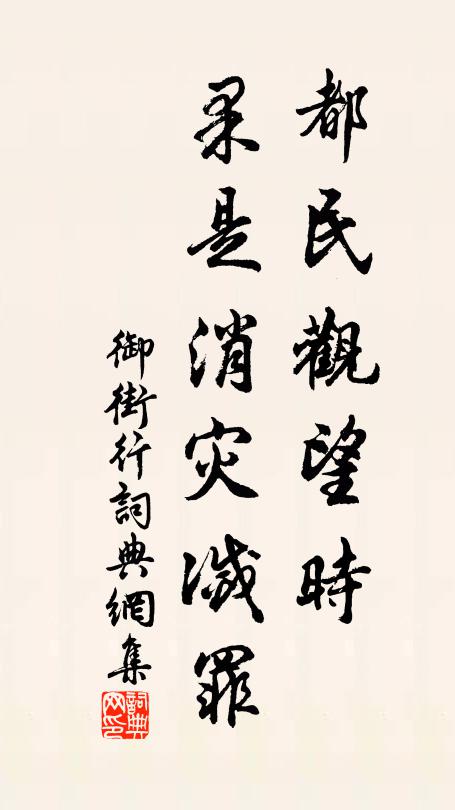 都民觀望時
果是消灾滅罪
御街行詞典網集
詞典网印